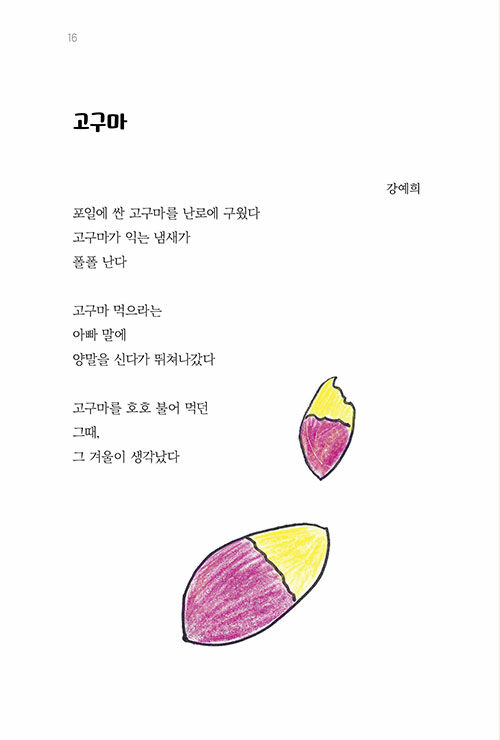 16
고구마
강예희
포일에 싼 고구마를 난로에 구웠다
고구마가 익는 냄새가
폴폴 난다
고구마 먹으라는
아빠 말에
양말을 신다가 뛰쳐나갔다
고구마를 호호 불어 먹던
그때,
그 겨울이 생각났다